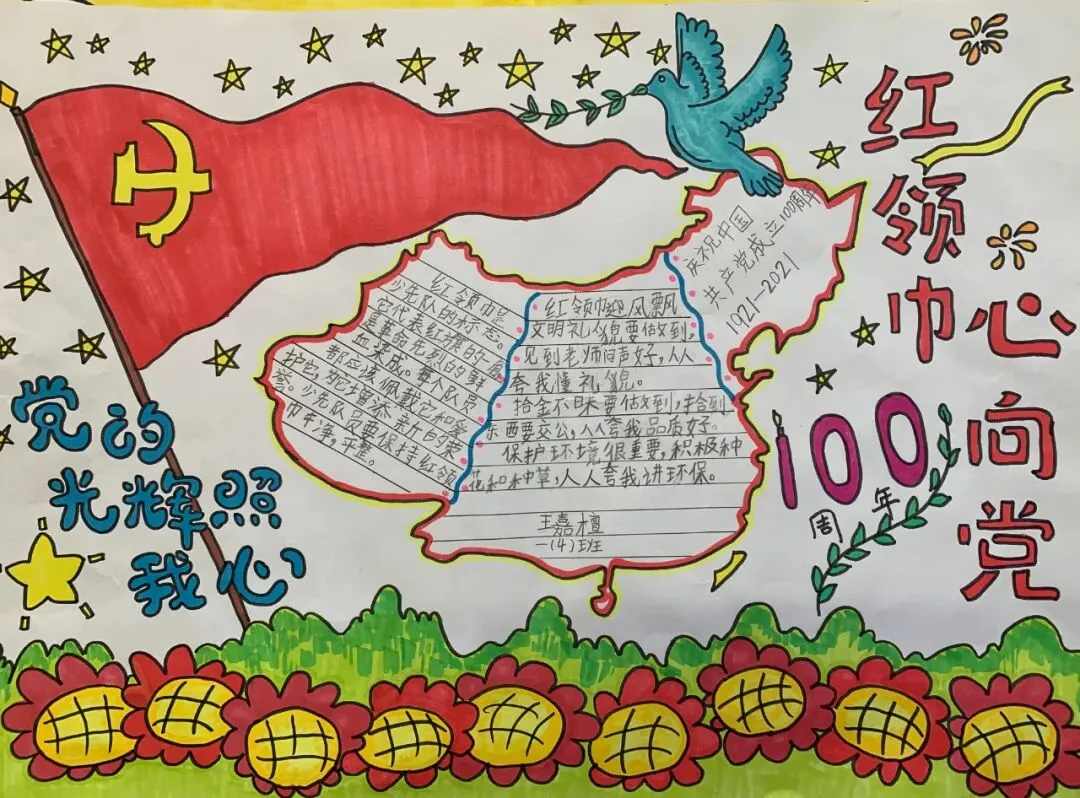 红领巾心向党
党的
光辉照
我心
红领巾是
少先队的标志。
它代表红旗的一角,
是革命先烈的鲜
血染成。每个队员
都应该佩戴它和爱
护它,为它增添新的荣
誉。少先队员要保持红领
巾干净,平整。
红领巾迎风飘
文明礼貌要做到,
见到老师问声好,人人
夸我懂礼貌。
拾金不昧要做到,拾到
东西要交公,人人夸我品质好。
保护环境很重要,积极种
花和种草,人人夸我讲环保。
王嘉檀
一(4)班
庆祝中国
共产党成立100周年
1921-2021
100
周年